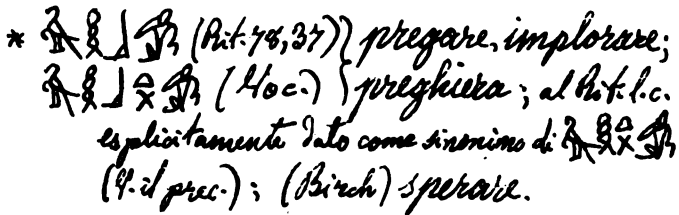 * (Rit. 78, 37) } pregare, implorare;
(Voc.) } preghiera; al Rit. l. c.
esplicitamente dato come sinonimo di
(V. il prec.); (Birch) sperare.